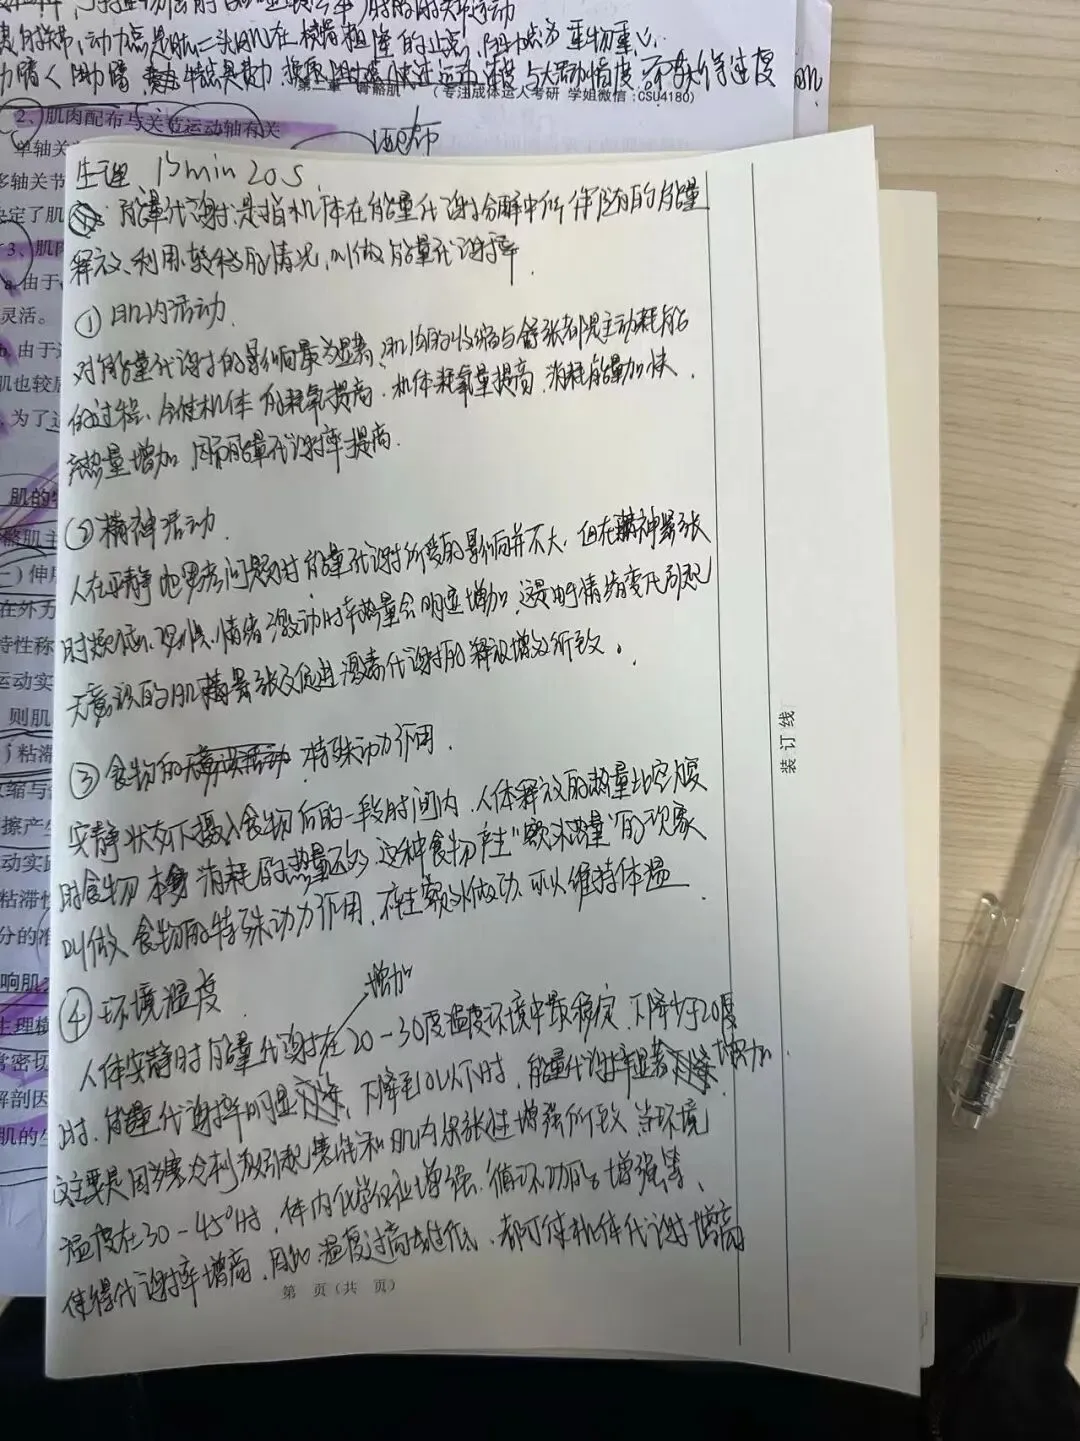 动力点是肱二头肌在桡骨粗隆的止点,阻力点为重物重心
力臂<阻力臂
第二章 骨骼肌 (专注成体运人考研 学姐微信:CSU4180)
2、肌肉配布与关节运动轴有关
单轴关
多轴关节
决定了肌
3、肌肉
a.由于
灵活。
b.由于
肌也较
为了
肌的
骼肌主
一)伸
在外力
特性称
运动实
则肌
)粘滞
缩与
擦产生
动实践
粘滞性
分的准
响肌
生理横
常密切
解剖因
肌的生
生理 13min 20s
能量代谢:是指机体在能量代谢分解中所伴随的能量
释放、利用、转移的情况,叫做能量代谢率.
① 肌肉活动.
对能量代谢的影响最为显著,肌肉的收缩与舒张都是主动耗能
的过程、会使机体的耗氧提高.机体耗氧量提高.消耗能量加快.
产热量增加,因而能量代谢率提高.
②精神活动.
人在平静地思考问题时能量代谢所受的影响并不大.但在精神紧张
时烦恼、恐惧、情绪激动时产热量会明显增加,这是由于情绪变化引起
无意识的肌紧张及促进激素代谢的释放增多所致。
③食物的特殊动力作用.
安静状态下摄入食物后的一段时间内,人体释放的热量比空腹
时食物本身消耗的热量还多,这种食物产生“额外热量”的现象
叫做食物的特殊动力作用,不能额外做功,可以维持体温
④环境温度. 增加
人体安静时能量代谢在20-30度温度环境中最稳定,下降少于20度
时.能量代谢率明显下降,下降至10以下时,能量代谢率显著下降增加.
这主要是因为寒冷刺激引起寒战和肌肉紧张性增强所致 当环境
温度在30-45°时,体内化学反应增强.循环功能增强等、
使得代谢率增高,因此温度过高或过低,都可使机体代谢增高
第 页(共 页)
装订线